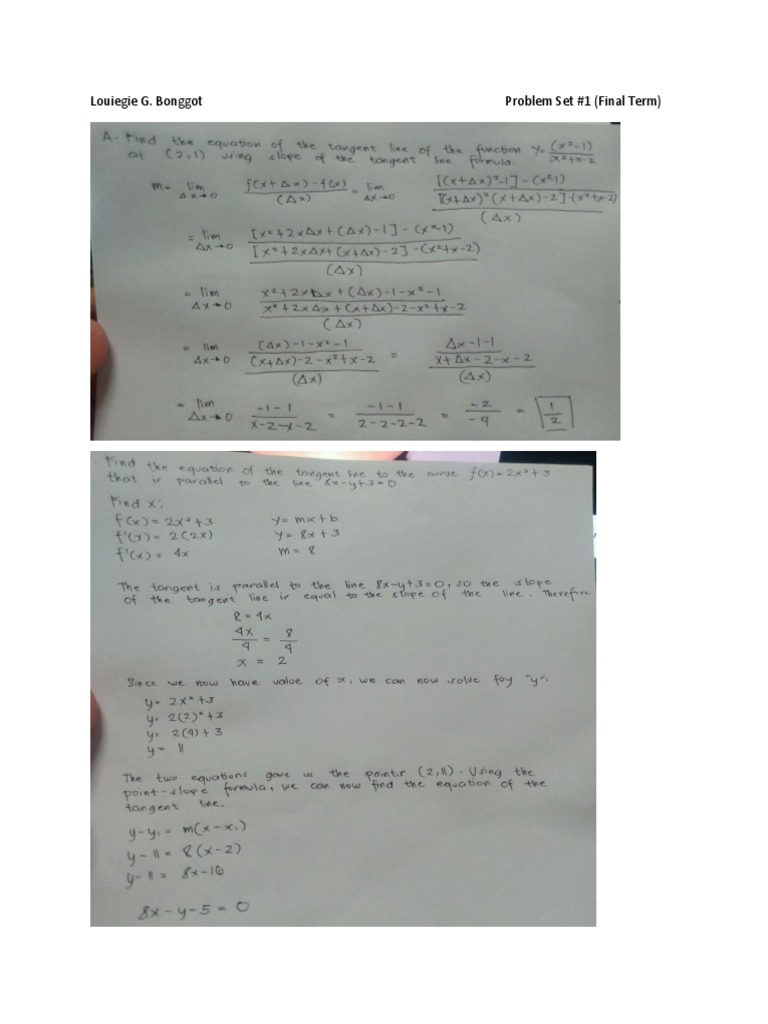 Louiegie G. Bonggot Problem Set #1 (Final Term)
A. Find the equation of the tangent line of the function y= (x²-1)/x²+x-2
at (2,1) using slope of the tangent line formula.
m= lim Δx→0 f(x+Δx)-f(x)/(Δx) = lim Δx→0 [(x+Δx)²-1]-(x²-1)/[(x+Δx)²(x+Δx)-2]-(x²+x-2)/(Δx)
= lim Δx→0 [x²+2xΔx+(Δx)-1]-(x²-1)/[x²+2xΔx+(x+Δx)-2]-(x²+x-2)/(Δx)
= lim Δx→0 x²+2xΔx+(Δx)-1-x²-1/x²+2xΔx+(x+Δx)-2-x²+x-2/(Δx)
= lim Δx→0 (Δx)-1-x²-1/(x+Δx)-2-x²+x-2/(Δx) = Δx-1-1/x+Δx-2-x-2/(Δx)
= lim Δx→0 -1-1/x-2-x-2 = -1-1/2-2-2-2 = -2/-4 = 1/2
Find the equation of the tangent line to the curve f(x)=2x²+3
that is parallel to the line 8x-y+3=0
Find x;
f(x)=2x²+3 y=mx+b
f'(x)=2(2x) y=8x+3
f'(x)=4x m=8
The tangent is parallel to the line 8x-y+3=0, so the slope
of the tangent line is equal to the slope of the line. Therefore
8=4x
4x/4 = 8/4
x = 2
Since we now have value of x, we can now solve foy "y";
y= 2x²+3
y= 2(2)²+3
y= 2(4)+3
y= 11
The two equations gave us the points (2,11). Using the
point-slope formula, we can now find the equation of the
tangent line.
y-y₁= m(x-x₁)
y-11= 8(x-2)
y-11= 8x-16
8x-y-5=0